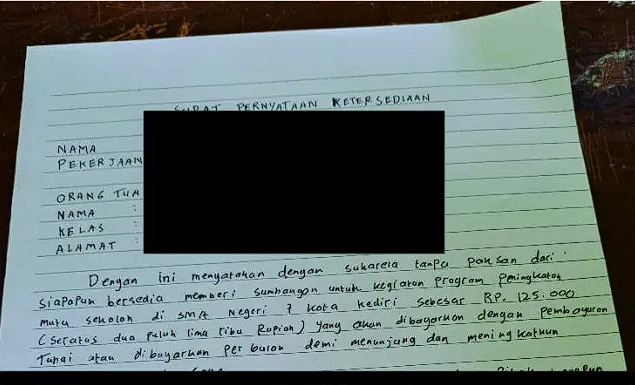 SURAT PERNYATAAN KETERSEDIAAN
NAMA
PEKERJAAN
ORANG TUA
NAMA :
KELAS :
ALAMAT :
Dengan ini menyatakan dengan sukarela tanpa paksan dari
siapapun bersedia memberi sumbangan untuk kegiatan program peningkatan
mutu sekolah di SMA Negeri 7 Kota Kediri sebesar RP. 125.000
(Seratus dua puluh lima ribu Rupiah) yang akan dibayarkan dengan pembayaran
Tunai atau dibayarkan per bulan demi menunjang dan meningkatkan